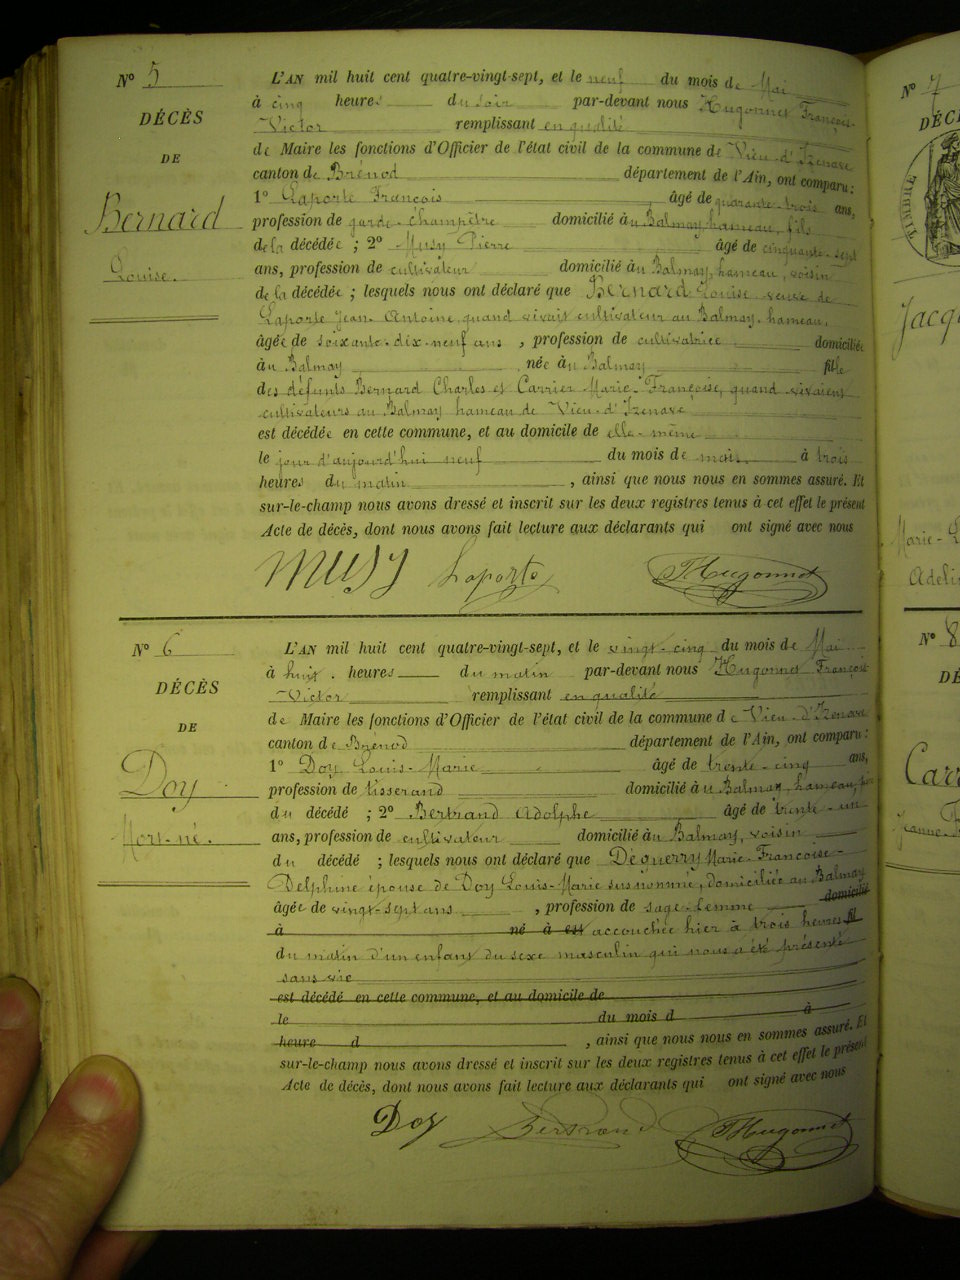 N° 5
DÉCÈS
DE
Bernard
Louise.
L'AN mil huit cent quatre-vingt-sept, et le neuf du mois de Mai
à cinq heures du soir par-devant nous Hugonnet François-
Victor remplissant en qualité
de Maire les fonctions d'Officier de l'état civil de la commune de Vieu-d'Izenave
canton de Brénod département de l'Ain, ont comparu :
1° Laporte François âgé de quarante-trois ans,
profession de garde-champêtre domicilié au Balmay hameau, fils
de la décédée ; 2° Musy Pierre âgé de cinquante-sept
ans, profession de cultivateur domicilié au Balmay, hameau, voisin
de la décédée ; lesquels nous ont déclaré que Bernard Louise veuve de
Laporte Jean-Antoine quand vivait cultivateur au Balmay, hameau,
âgée de soixante-dix-neuf ans , profession de cultivatrice domiciliée
au Balmay née au Balmay fille
des défunts Bernard Charles et Carrier Marie-Françoise, quand vivaient
cultivateurs au Balmay hameau de Vieu-d'Izenave
est décédée en cette commune, et au domicile de elle-même
le jour d'aujourd'hui neuf du mois de mai à trois
heures du matin , ainsi que nous nous en sommes assuré. Et
sur-le-champ nous avons dressé et inscrit sur les deux registres tenus à cet effet le présent
Acte de décès, dont nous avons fait lecture aux déclarants qui ont signé avec nous
MUSY Laporte Hugonnet
N° 6
DÉCÈS
DE
Doy
Mort-né.
L'AN mil huit cent quatre-vingt-sept, et le vingt-cinq du mois de Mai
à huit heures du matin par-devant nous Hugonnet François
Victor remplissant en qualité
de Maire les fonctions d'Officier de l'état civil de la commune de Vieu-d'Izenave
canton de Brénod département de l'Ain, ont comparu :
1° Doy Louis-Marie âgé de trente-cinq ans,
profession de tisserand domicilié au Balmay, hameau, père
du décédé ; 2° Bertrand Adolphe âgé de trente-un
ans, profession de cultivateur domicilié au Balmay, voisin
du décédé ; lesquels nous ont déclaré que Déguerry Marie-Françoise-
Delphine épouse de Doy Louis-Marie susnommé, domiciliée au Balmay
âgée de vingt-sept ans , profession de sage-femme domicilié
à né à est accouchée hier à trois heures fil
du matin d'un enfant du sexe masculin qui nous a été présenté
sans vie
est décédé en cette commune, et au domicile de
le du mois d à
heure d , ainsi que nous nous en sommes assuré. Et
sur-le-champ nous avons dressé et inscrit sur les deux registres tenus à cet effet le présent
Acte de décès, dont nous avons fait lecture aux déclarants qui ont signé avec nous
Doy Bertrand Hugonnet
N° 7
DÉC
TIMBRE
Jacq
Marie-
Adeli
N° 8
DÉ
Carr
Jeanne